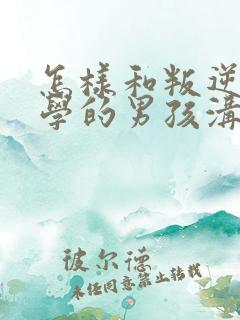 怎樣和叛逆
學的男孩溝
彼尔德
未任同意禁止转载